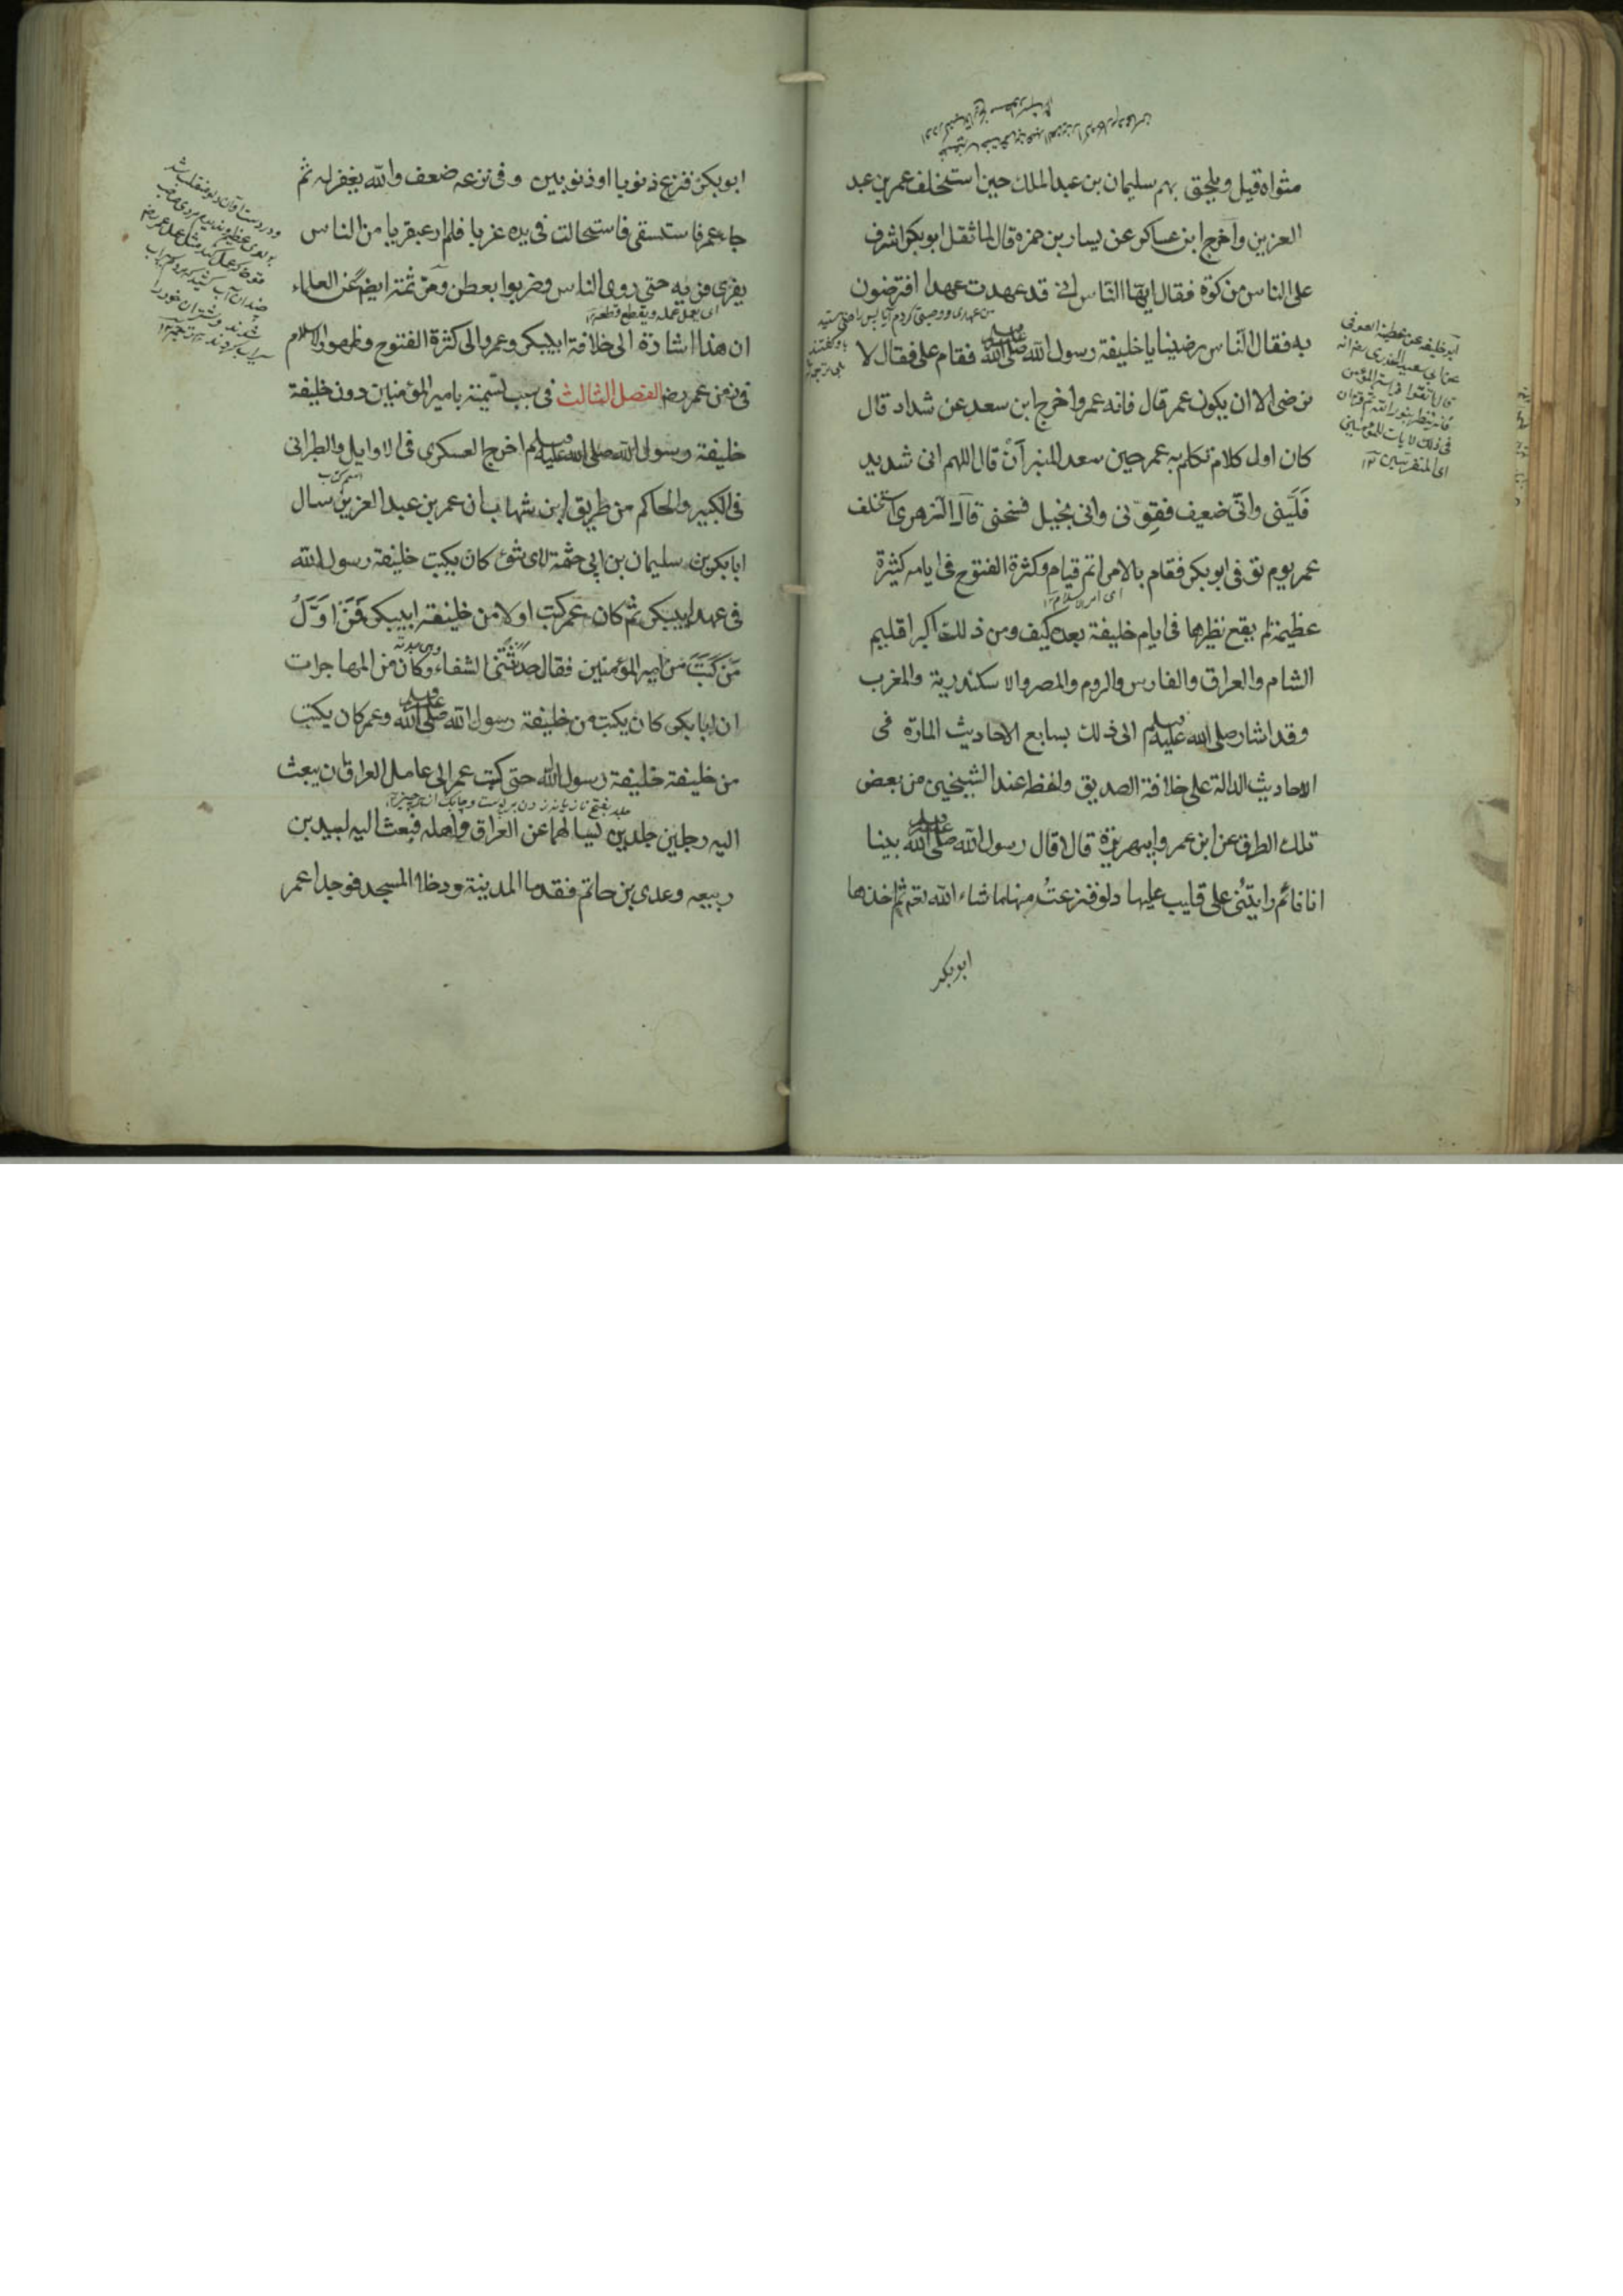 مثواه قيل ويلحق بهم سليمان بن عبد الملك حين استخلف عمر بن عبد
العزيز واخرج ابن عساكر عن يسار بن حمزة قال لما ثقل ابو بكر اشرف
على الناس من كوة فقال ايها الناس انى قد عهدت عهدا افترضون
به فقال الناس رضينا يا خليفة رسول الله صلى الله عليه وسلم فقام على فقال لا
نرضى الا ان يكون عمر قال فانه عمر واخرج ابن سعد عن شداد قال
كان اول كلام تكلم به عمر حين سعد المنبر ان قال اللهم انى شديد
فليّنى وانى ضعيف فقوّنى وانى بخيل فسخنى قال الزهرى استخلف
عمر يوم توفى ابو بكر فقام بالامر اتم قيام وكثرة الفتوح فى ايامه كثيرة
اى امر الاسلام ١٢
عظيمة لم يقع نظيرها فى ايام خليفة بعده كيف ومن ذلك اكبر اقليم
الشام والعراق والفارس والروم والمصر والاسكندرية والمغرب
وقد اشار صلى الله عليه وسلم الى ذلك بسابع الاحاديث المارة فى
الاحاديث الدالة على خلافة الصديق ولفظه عند الشيخين من بعض
تلك الطرق عن ابن عمر وابيهريرة قالا قال رسول الله صلى الله عليه وسلم بينا
انا نائم رايتنى على قليب عليها دلو فنزعتُ منها ما شاء الله تعم ثم اخذها
ابوبكر
من عهدى ووصيتى كردم آيا پس راضى هستيد
ابو خليفه عن عطية العوفى
عن ابى سعيد الخدرى رضه انه
قال اتقوا فراسة المؤمن
فانه ينظر بنور الله ثم قرء ان
فى ذلك لايات للمتوسمين
اى المتفرسين ١٢
ابو بكر فنزع ذنوبا او ذنوبين وفى نزعه ضعف والله يغفر له ثم
جاء عمر فاستسقى فاستحالت فى يده غربا فلم ار عبقريا من الناس
يفرى فريه حتى روى الناس وضربوا بعطن ومن ثمة ايضم عن العلماء
اى يعمل عمله ويقطع قطعه ١٢
ان هذا اشارة الى خلافة ابيبكر وعمر والى كثرة الفتوح وظهور الاسلام
فى زمن عمر رضه الفصل الثالث فى سبب تسمية بامير المؤمنين دون خليفة
خليفة رسول الله صلى الله عليه وسلم اخرج العسكرى فى الاوايل والطبرانى
اسم كتاب
فى الكبير والحاكم من طريق ابن شهاب ان عمر بن عبد العزيز سال
ابا بكر بن سليمان بن ابى حثمة لاى شئ كان يكتب خليفة رسول الله
فى عهد ابيبكر ثم كان عمر كتب اولا من خليفة ابيبكر فَمَن اَوَّلُ
مَن كَتَبَ من امير المؤمنين فقال حدثتنى الشفاء وكان من المهاجرات
ان ابا بكر كان يكتب من خليفة رسول الله صلى الله عليه وسلم وعمر كان يكتب
من خليفة خليفة رسول الله حتى كتب عمر الى عامل العراق ان يبعث
اليه رجلين جلدين ليسالهما عن العراق واهله فبعث اليه لبيد بن
ربيعه وعدى بن حاتم فقدما المدينة ودخلا المسجد فوجدا عمر